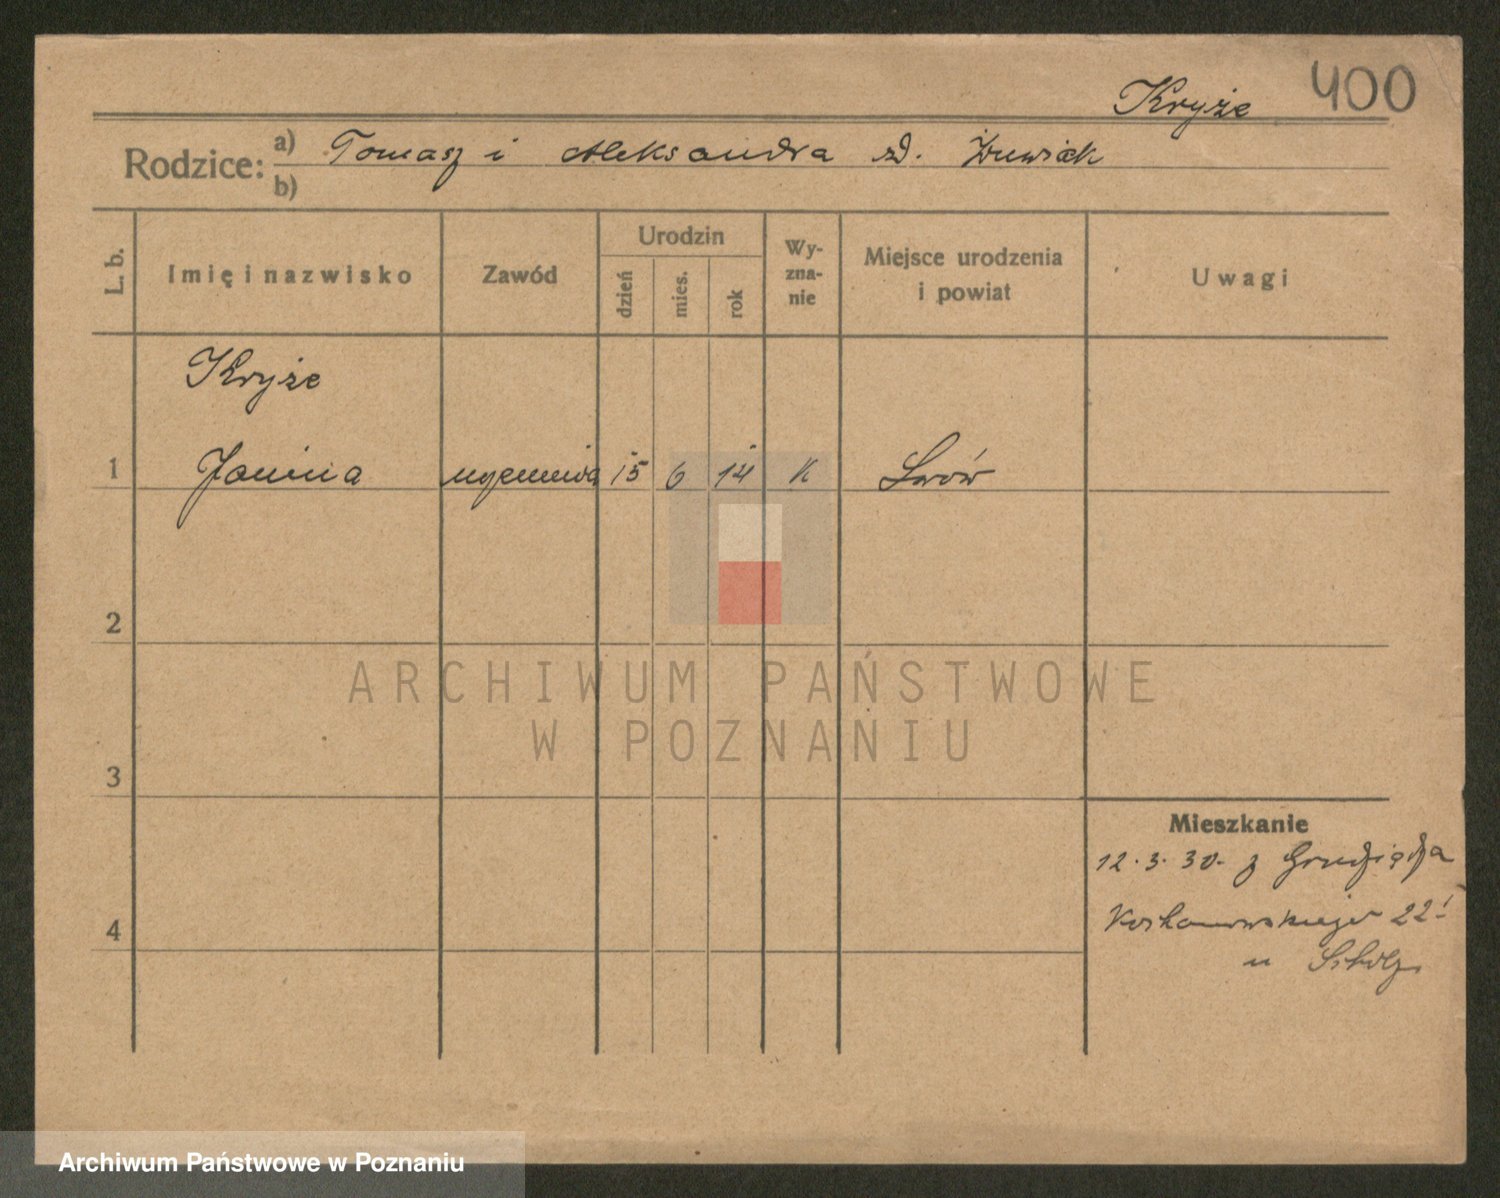 Kryże 400
Rodzice: a) Tomasz i Aleksandra zd.
b)
L. b.
Imię i nazwisko
Zawód
Urodzin
dzień
mies.
rok
Wy-
zna-
nie
Miejsce urodzenia
i powiat
Uwagi
Kryże
1 Janina uczennica 15 6 14 K Lwów
2
ARCHIWUM PAŃSTWOWE
W POZNANIU
3
Mieszkanie
12.3.30. z Grudziądza
22
4
u
Archiwum Państwowe w Poznaniu